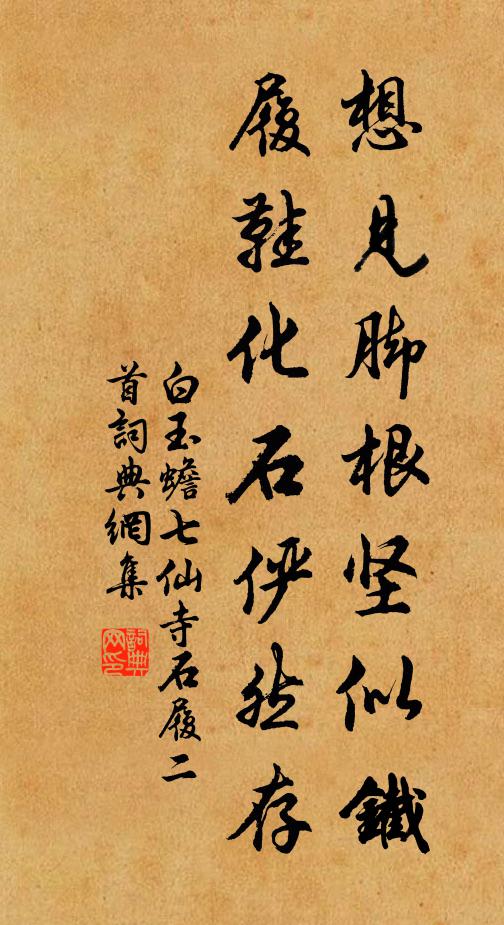 想见脚根坚似鐵
履鞋化石俨然存
白玉蟾七仙寺石履二
首詞典網集
詞典网印